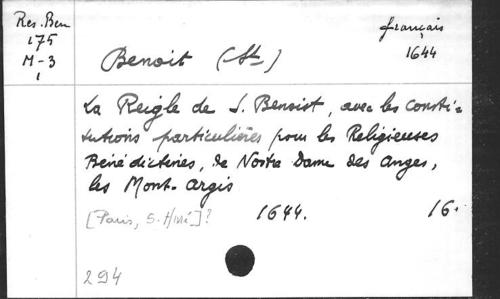 Res. Ben
175
M-3
1
français
1644
Benoit (St)
La Reigle de S. Benoist, avec les consti-
tutions particulières pour les Religieuses
Bénédictines, de Nostre Dame des Anges,
les Mont-Argis
[Paris, S. Huré]? 1644. 16.
294